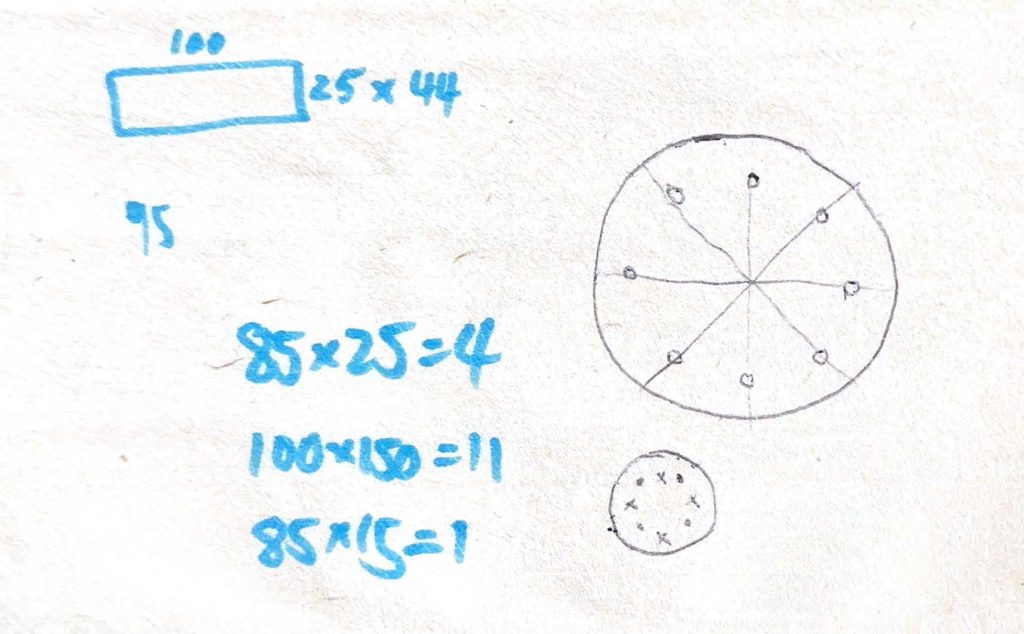 100
25 x 44
95
85x25=4
100x150=11
85x15=1